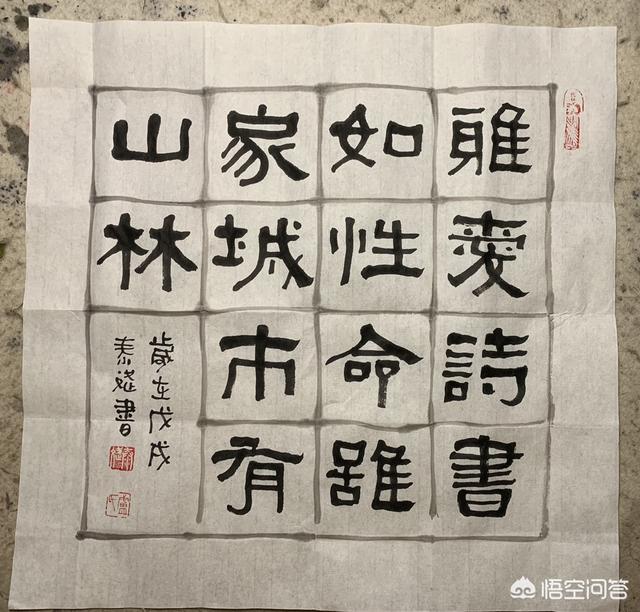 雅愛詩書
如性命雖
家城市有
山林
歲在戊戌
泰書
悟空问答